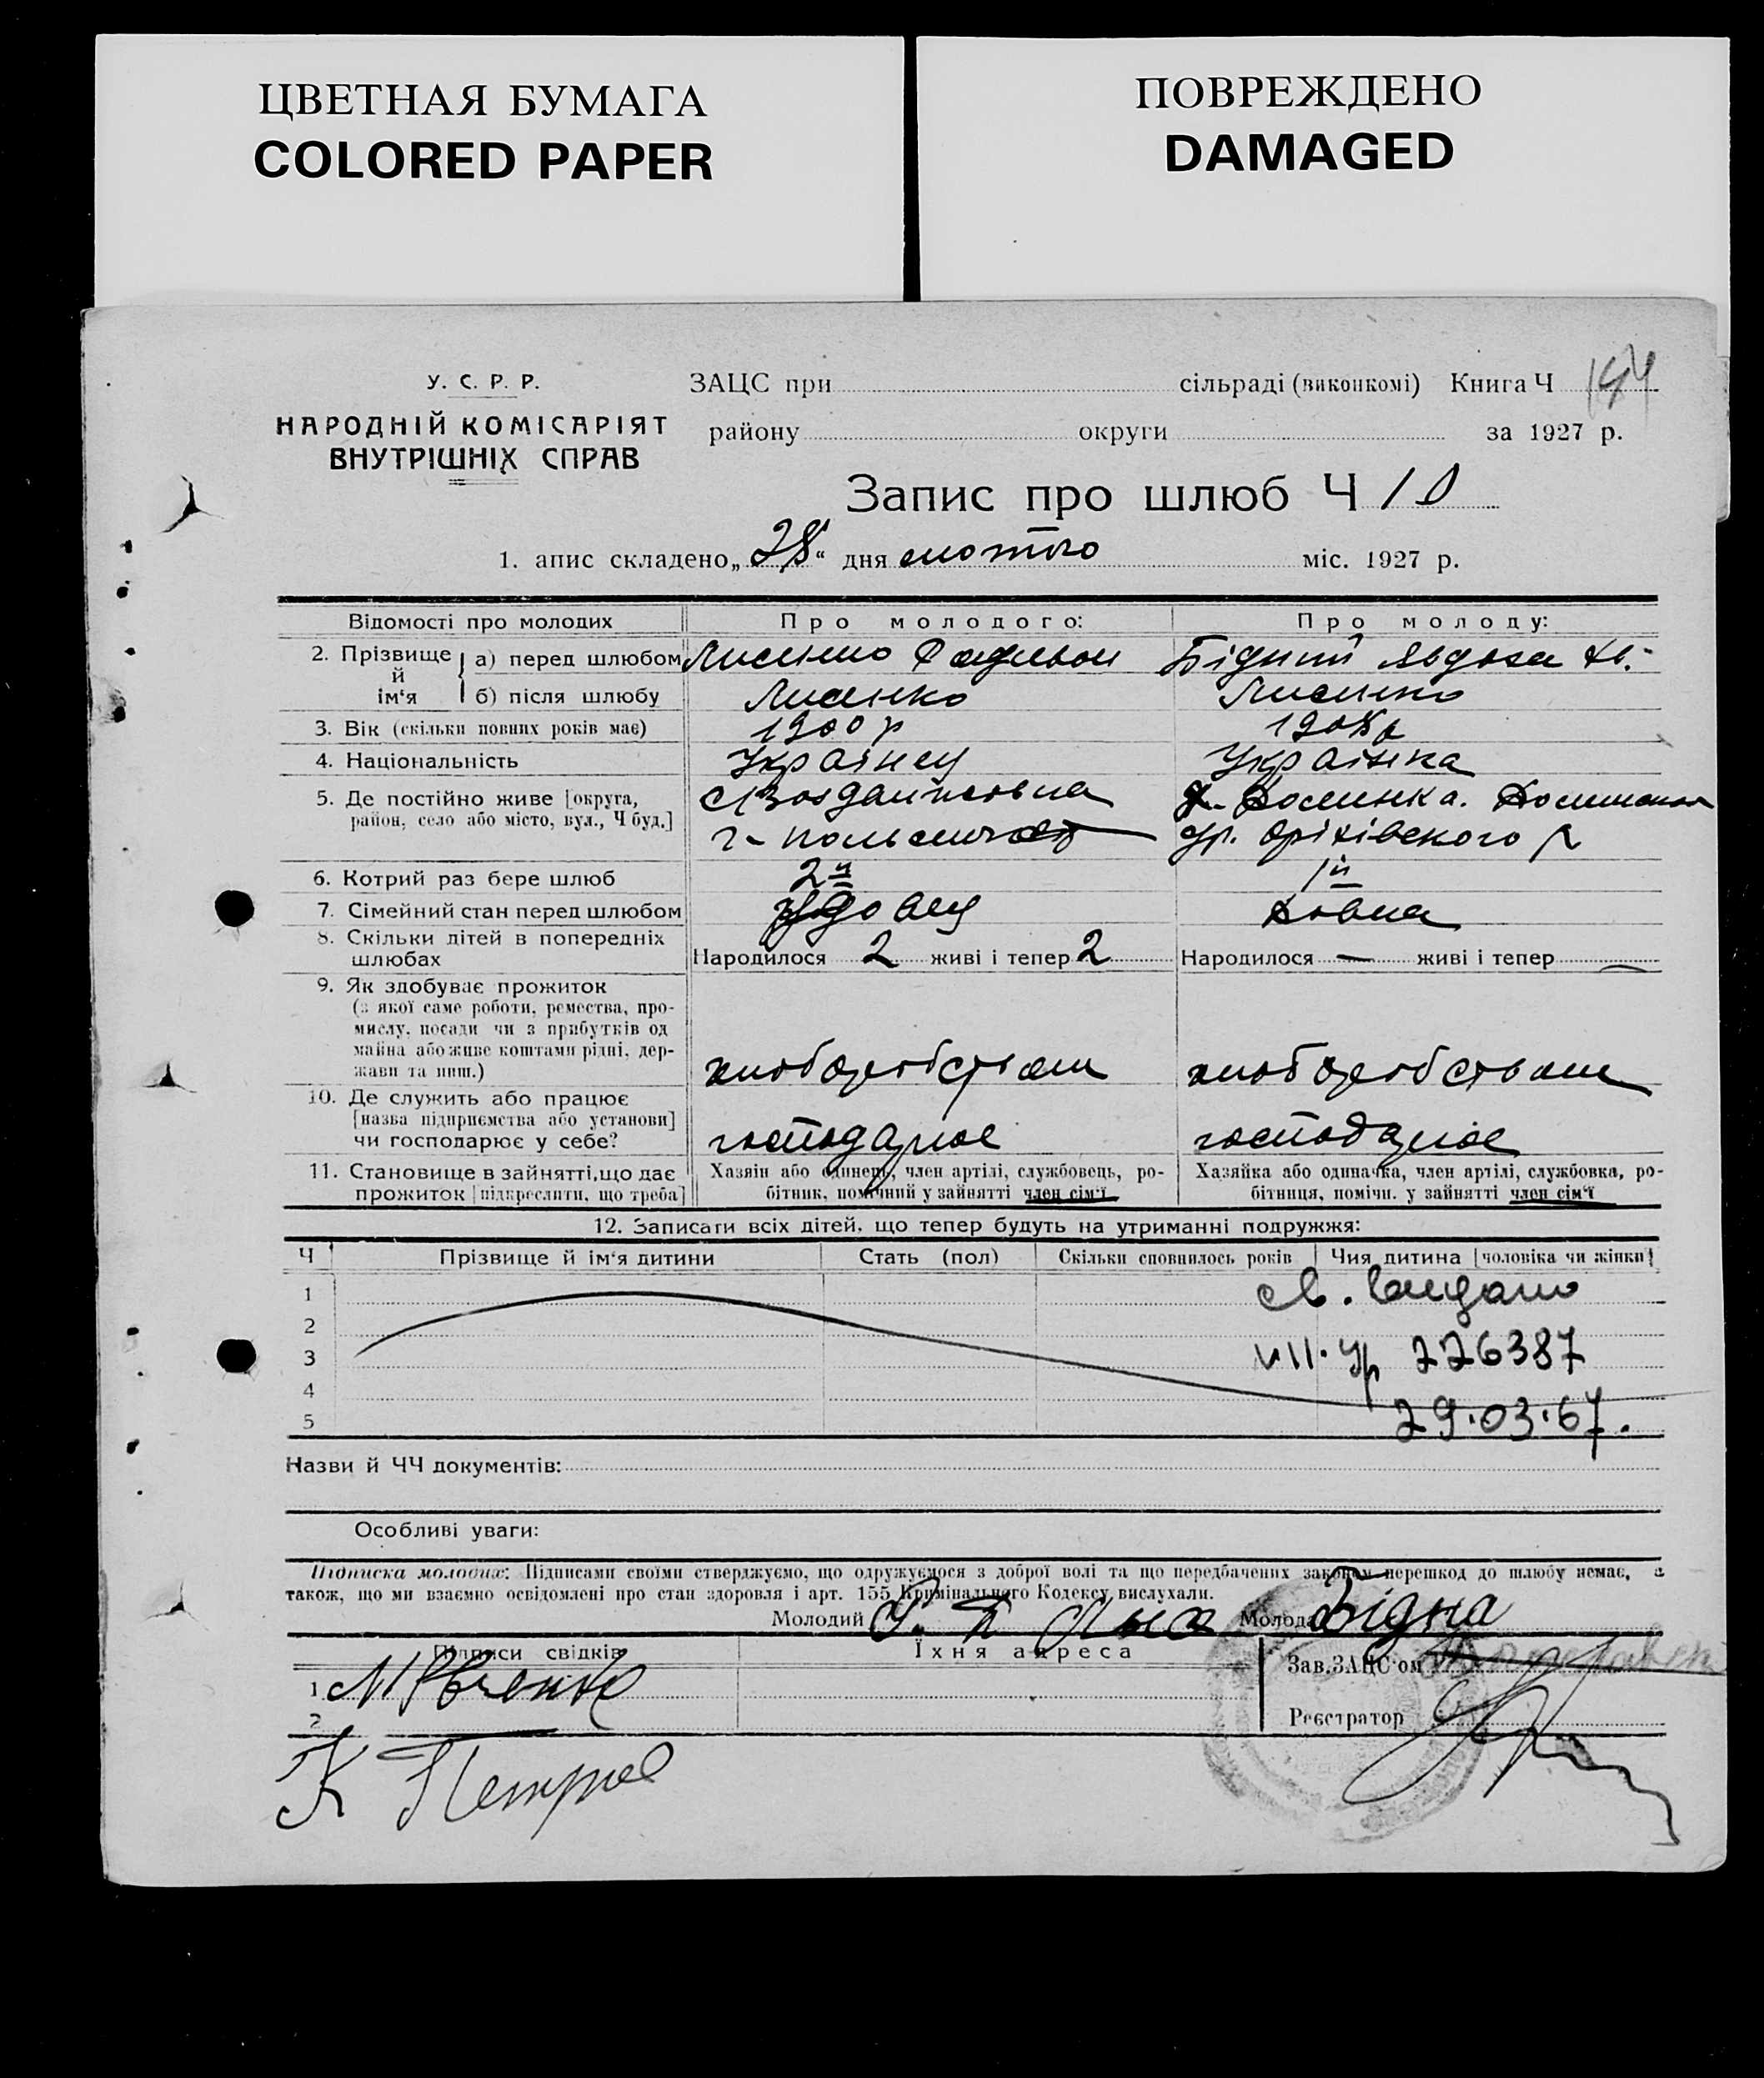 ЦВЕТНАЯ БУМАГА
COLORED PAPER
ПОВРЕЖДЕНО
DAMAGED
У. С. Р. Р.
НАРОДНІЙ КОМІСАРІЯТ
ВНУТРІШНІХ СПРАВ
ЗАЦС при сільраді (виконкомі) Книга Ч
району округи за 1927 р.
Запис про шлюб Ч 10
1. апис складено „28“ дня лютого міс. 1927 р.
Відомості про молодих Про молодого: Про молоду:
2. Прізвище й ім‘я
а) перед шлюбом Лисенко Бідний Явдоха
б) після шлюбу Лисенко Лисенко
3. Вік (скільки повних років має) 1900 р 1908 р
4. Національність Українец Українка
5. Де постійно живе [округа,
район, село або місто, вул., Ч буд.]
Оріхівського р
6. Котрий раз бере шлюб 2й 1й
7. Сімейний стан перед шлюбом удовец
8. Скільки дітей в попередніх
шлюбах
Народилося 2 живі і тепер 2 Народилося — живі і тепер —
9. Як здобуває прожиток
(з якої саме роботи, ремества, про-
мислу, посади чи з прибутків од
майна або живе коштами рідні, дер-
жави та инш.)
хліборобством хліборобством
10. Де служить або працює
[назва підприємства або установи]
чи господарює у себе?
господарює господарює
11. Становище в зайнятті, що дає
прожиток [підкреслити, що треба]
Хазяїн або одинець, член артілі, службовець, ро-
бітник, помічний у зайнятті член сім‘ї
Хазяйка або одиначка, член артілі, службовка, ро-
бітниця, помічн. у зайнятті член сім‘ї
12. Записати всіх дітей, що тепер будуть на утриманні подружжя:
Ч Прізвище й ім‘я дитини Стать (пол) Скільки сповнилось років Чия дитина [чоловіка чи жінки]
1
2
3
4
5
226387
29.03.67.
Назви й ЧЧ документів:
Особливі уваги:
Підписка молодих: Підписами своїми стверджуємо, що одружуємося з доброї волі та що передбачених законом перешкод до шлюбу немає, а
також, що ми взаємно освідомлені про стан здоровля і арт. 155 Кримінального Кодексу вислухали.
Молодий Молода Бідна
Підписи свідків Їхня адреса
Зав. ЗАЦС‘ом
1
2
Реєстратор